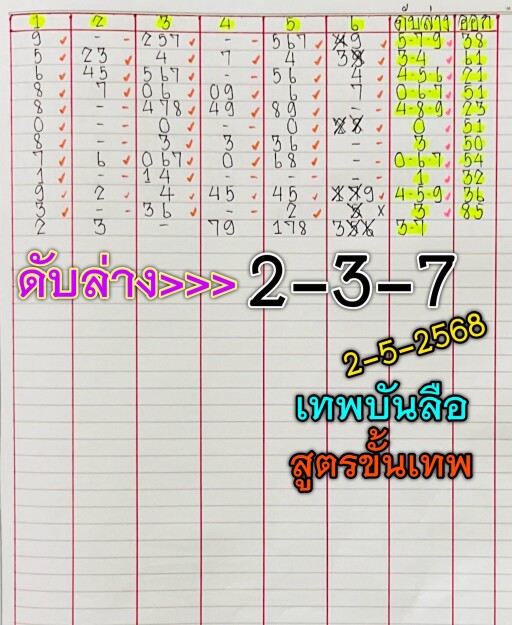 1 2 3 4 5 6 ดับล่าง ออก
9 - 257 - 567 9 5-7-9 38
5 23 4 7 4 3 3-4 61
6 45 567 - 56 4 4-5-6 21
8 7 06 09 6 7 0-6-7 51
8 - 478 49 89 - 4-8-9 23
0 - 0 - 0 0 51
8 - 3 3 36 - 3 50
7 6 067 0 68 - 0-6-7 54
1 - 14 - - - 1 32
9 2 4 45 45 9 4-5-9 36
3 - 36 - 2 3 85
2 3 - 79 178 3 3-7
ดับล่าง>>> 2-3-7
2-5-2568
เทพบันลือ
สูตรขั้นเทพ